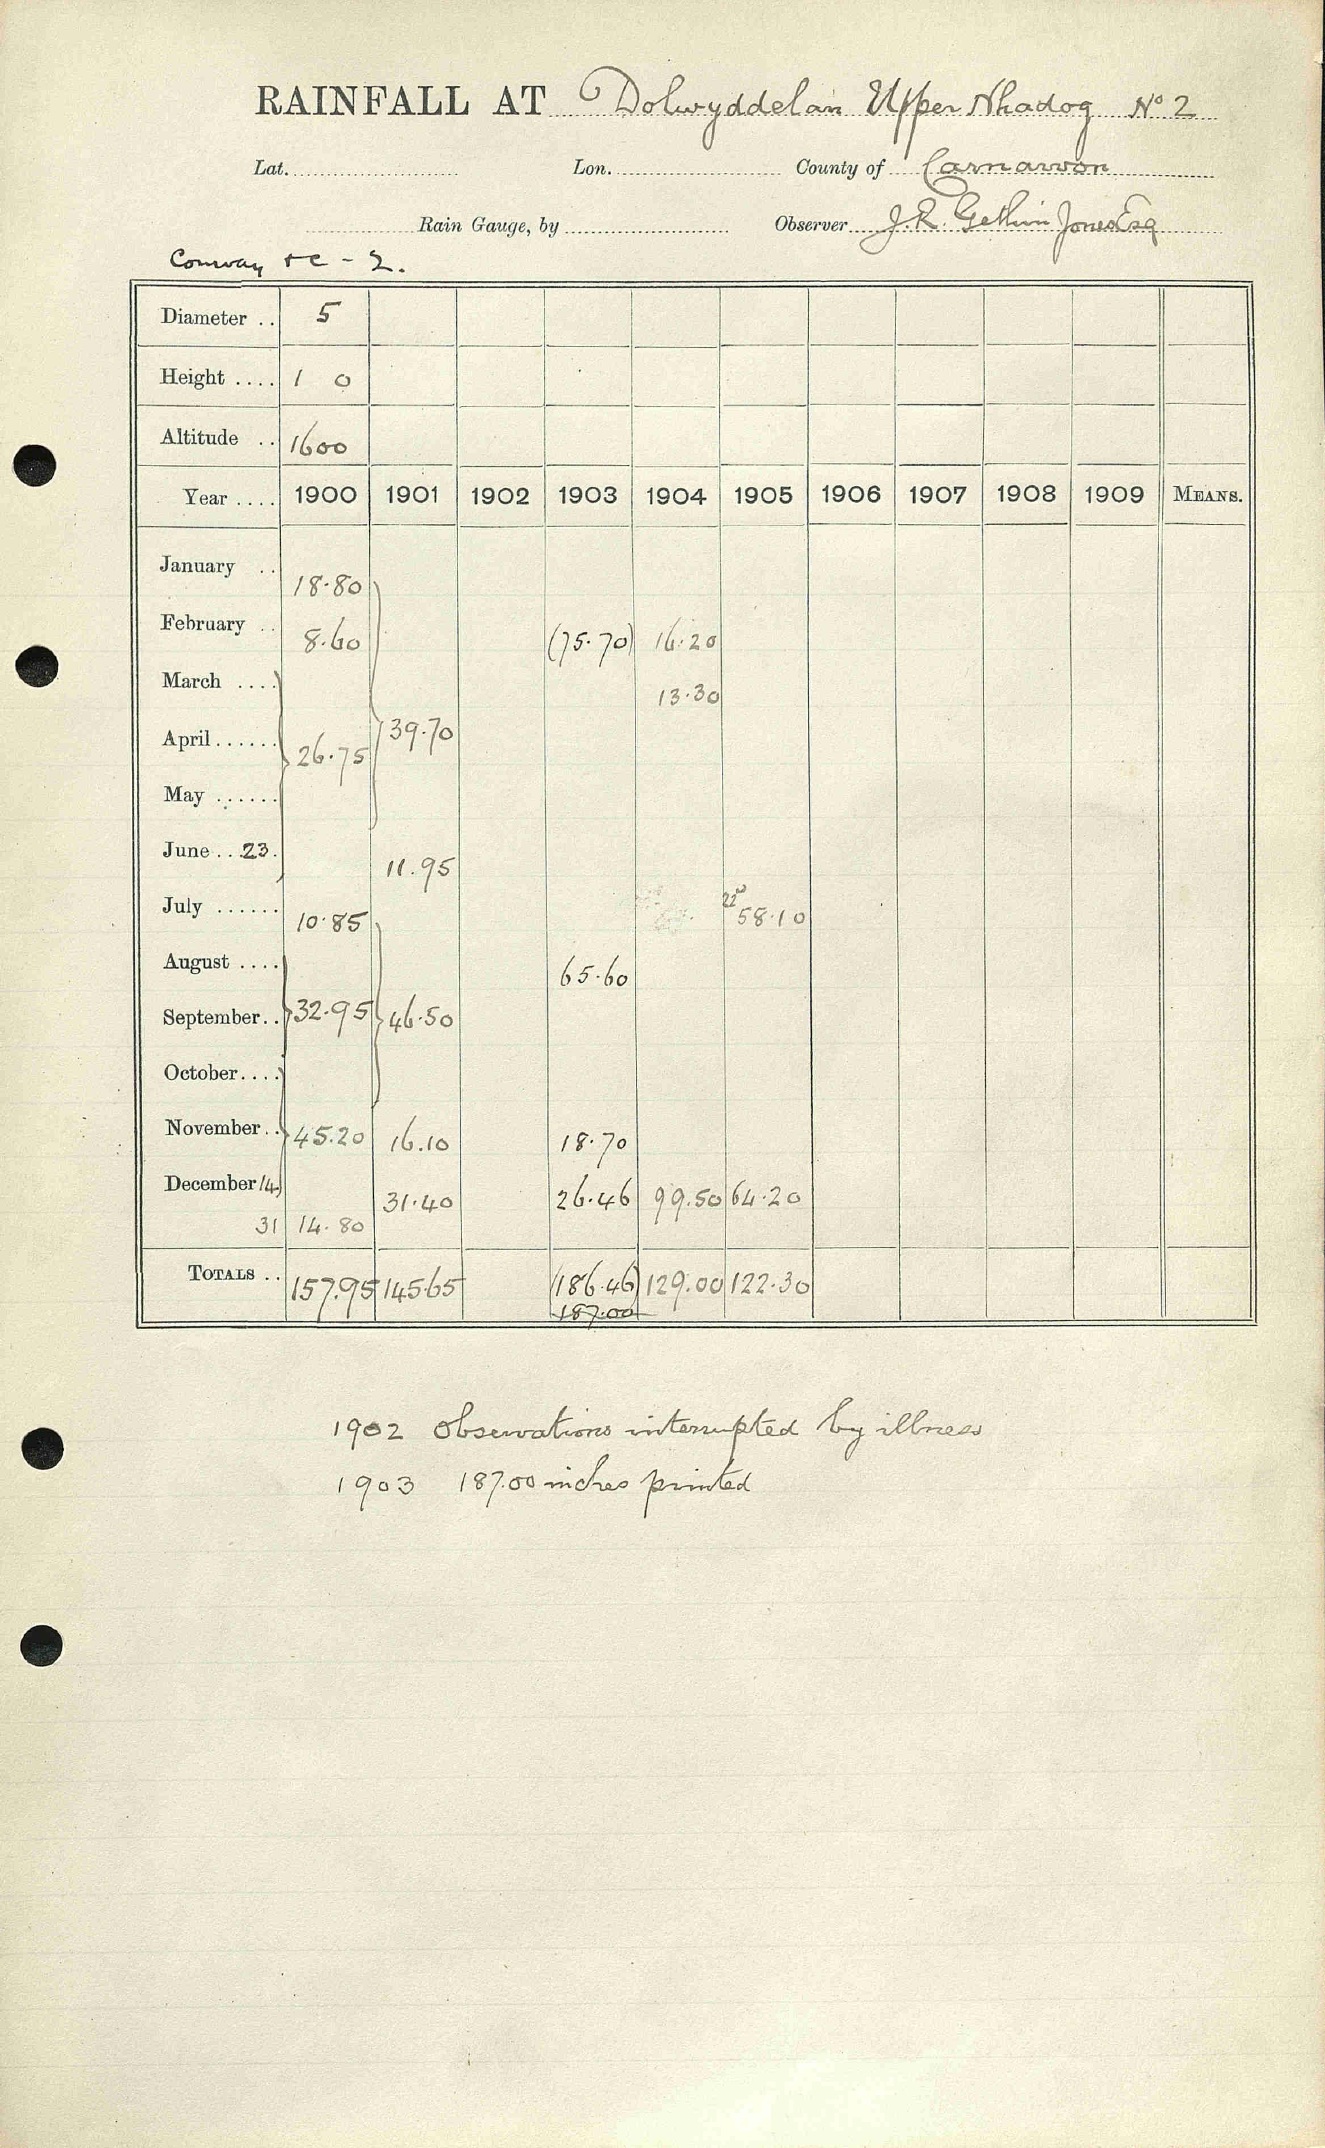 RAINFALL AT Dolwyddelan Upper Nhadog No 2
Lat. Lon. County of Carnarvon
Rain Gauge, by Observer J.R. Gethin Jones Esq
Conway &c - 2.
Diameter .. 5
Height .... 1 0
Altitude .. 1600
Year .... 1900 1901 1902 1903 1904 1905 1906 1907 1908 1909 MEANS.
January .. 18.80
February .. 8.60 (75.70) 16.20
March .... 13.30
April ...... 26.75 39.70
May ......
June ... 23. 11.95
July ...... 10.85 22nd 58.10
August .... 65.60
September .. 32.95 46.50
October ....
November .. 45.20 16.10 18.70
December 14 31.40 26.46 99.50 64.20
31 14.80
TOTALS .. 157.95 145.65 (186.46) 129.00 122.30
187.00
1902 Observations interrupted by illness
1903 187.00 inches printed